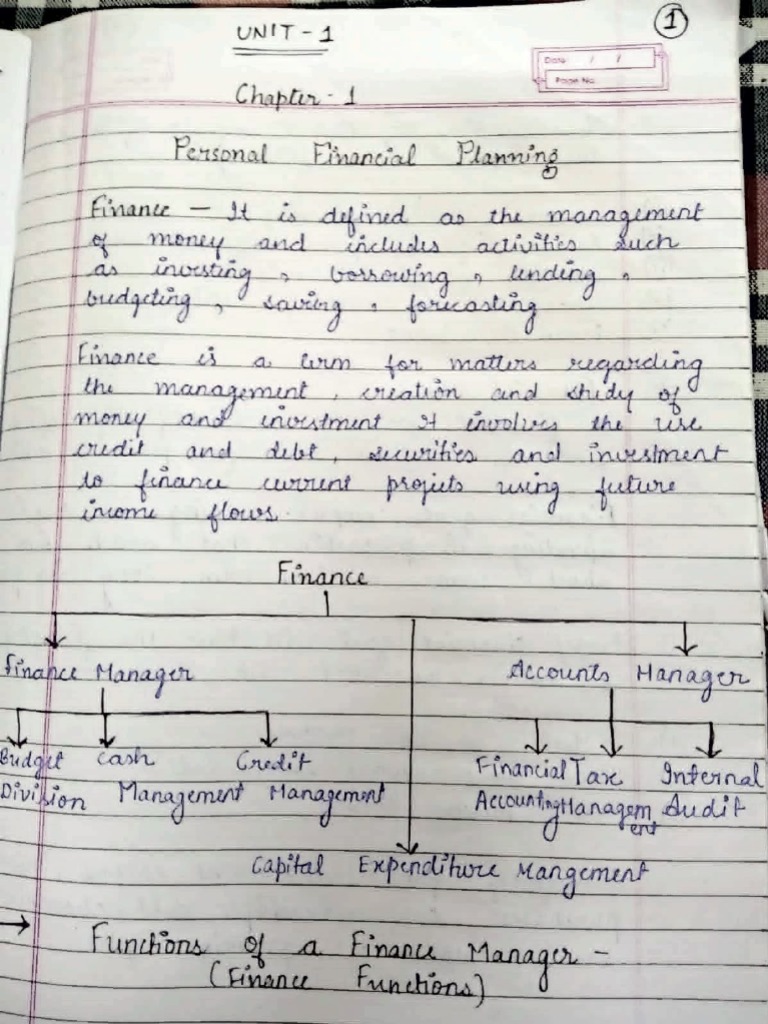 UNIT - 1
1
Date / /
Page No.
Chapter - 1
Personal Financial Planning
Finance — It is defined as the management
of money and includes activities such
as investing, borrowing, lending,
budgeting, saving, forecasting
Finance is a term for matters regarding
the management, creation and study of
money and investment It involves the use
credit and debt, securities and investment
to finance current projects using future
income flows.
Finance
Finance Manager
Accounts Manager
Budget Division
Cash Management
Credit Management
Financial Accounting
Tax Management
Internal Audit
Capital Expenditure Mangement
→ Functions of a Finance Manager -
(Finance Functions)